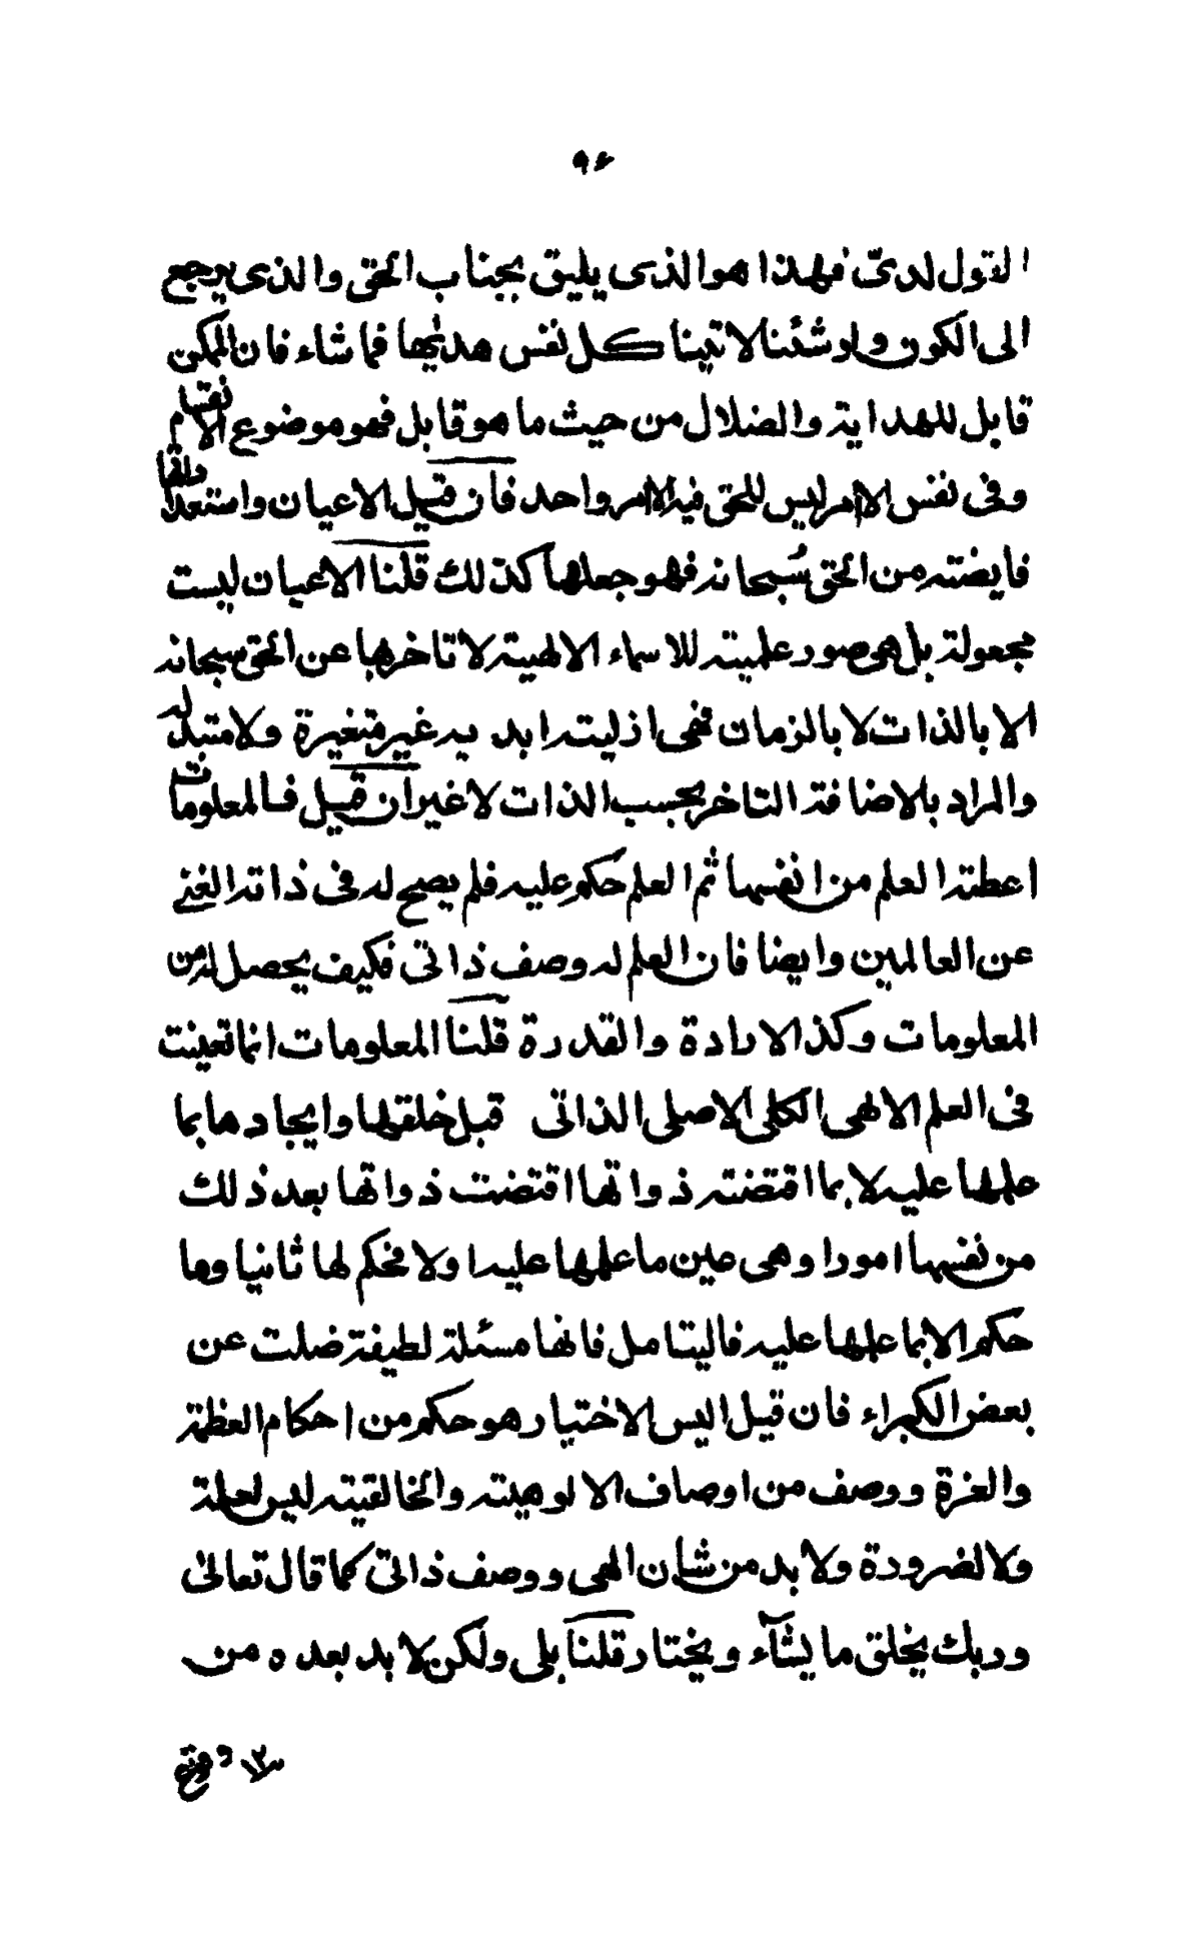 ٩٤
القول لدىّ فهذا هو الذى يليق بجناب الحق والذى يرجع
الى الكون ولو شئنا لاتينا كل نفس هديٰها فما شاء فان الممكن
قابل للهداية والضلال من حيث ما هو قابل فهو موضوع الانقسام
وفى نفس الامر ليس للحق فيه الا امر واحد فان قيل الاعيان واستعداداتها
فايضته من الحق سُبحانه فهو جعلها كذلك قلنا الاعيان ليست
مجعولة بل هى صور علمية للاسماء الالهية لا تاخر بها عن الحق سبحانه
الا بالذات لا بالزمان فهى ازلية ابديه غير متغيرة ولا متبدله
والمراد بالاضافة التاخر بحسب الذات لا غير ان قيل فالمعلومات
اعطته العلم من انفسها ثم العلم حكم عليه فلم يصح له فى ذاته الغنى
عن العالمين وايضا فان العلم له وصف ذاتى فكيف يحصل له من
المعلومات وكذا الارادة والقدرة قلنا المعلومات انما تعينت
فى العلم الالهى الكلى الاصلى الذاتى قبل خلقها وايجادها بما
علمها عليه لا بما اقتضته ذواتها اقتضت ذواتها بعد ذلك
من نفسها امورا وهى عين ما علمها عليه اولا فحكم لها ثانيا وما
حكم الا بما علمها عليه فاليتامل فانها مسئلة لطيفة ضلت عن
بعض الكبراء فان قيل اليس الاختيار هو حكم من احكام العظمة
والعزة ووصف من اوصاف الالوهية والخالقية ليس لعلة
ولا لضرورة ولا بد من شان الهى ووصف ذاتى كما قال تعالىٰ
وربك يخلق ما يشآء ويختار قلنا بلى ولكن لا بد بعده من